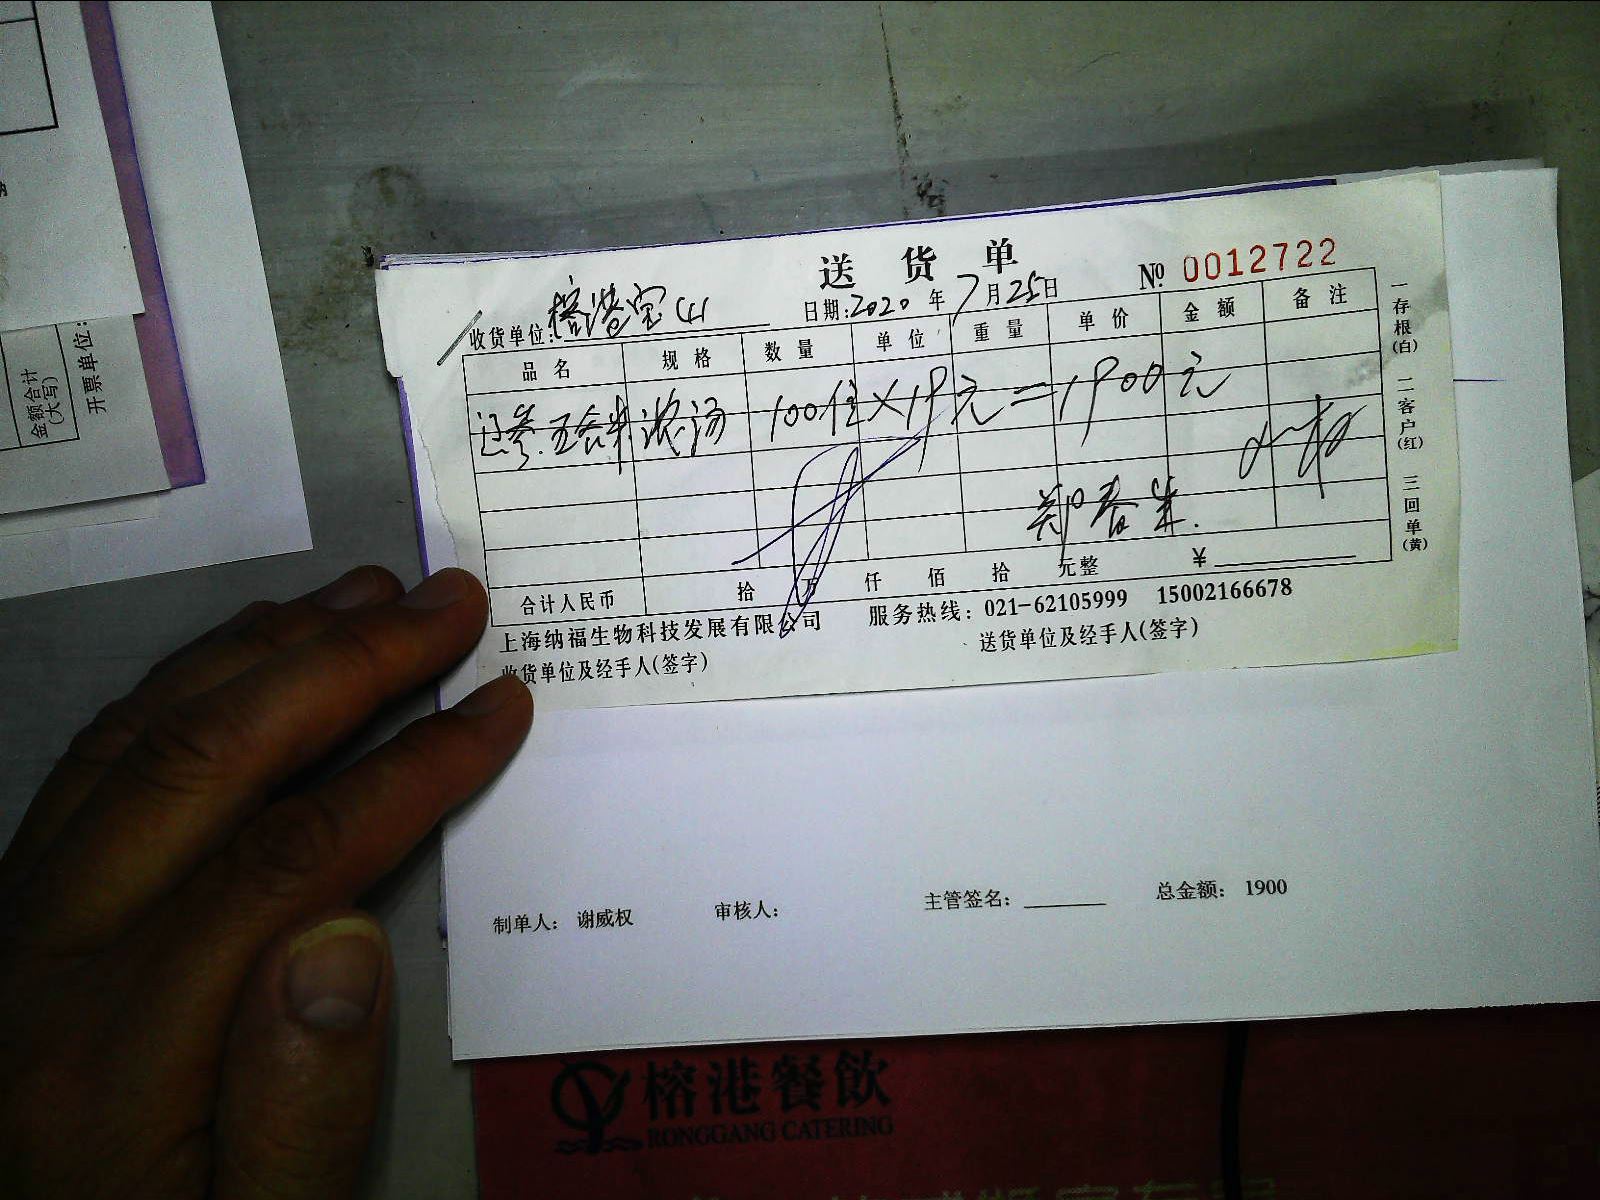 送货单
№ 0012722
收货单位: 榕港宝山 日期: 2020 年 7 月 25 日
品名 规格 数量 单位 重量 单价 金额 备注
辽参.五谷米浓汤 100位×19元=1900元
郑春生.
合计人民币 拾 万 仟 佰 拾 元整 ¥
上海纳福生物科技发展有限公司 服务热线: 021-62105999 15002166678
收货单位及经手人(签字) 送货单位及经手人(签字)
一存根(白) 二客户(红) 三回单(黄)
制单人: 谢威权 审核人: 主管签名: 总金额: 1900
金额合计
(大写)
开票单位:
榕港餐飲
RONGGANG CATERING